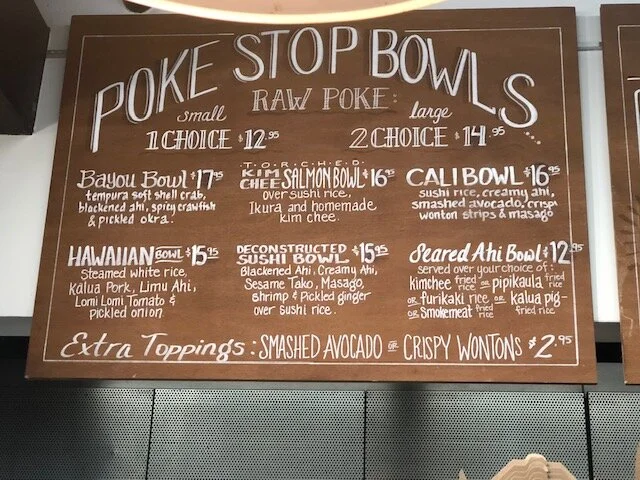 POKE STOP BOWLS
RAW POKE:
small
1 CHOICE $12.95
large
2 CHOICE $14.95
Bayou Bowl $17.95
tempura soft shell crab,
blackened ahi, spicy crawfish
& pickled okra.
TORCHED
KIM CHEE SALMON BOWL $16.95
over sushi rice,
Ikura and homemade
kim chee.
CALI BOWL $16.95
sushi rice, creamy ahi,
smashed avocado, crispy
wonton strips & masago
HAWAIIAN BOWL $15.95
Steamed white rice,
Kalua Pork, Limu Ahi,
Lomi Lomi Tomato &
pickled onion
DECONSTRUCTED
SUSHI BOWL $15.95
Blackened Ahi, Creamy Ahi,
Sesame Tako, Masago,
Shrimp & Pickled ginger
over sushi rice.
Seared Ahi Bowl $12.95
served over your choice of:
kimchee fried rice or pipikaula fried rice
or furikaki rice or kalua pig
or Smokemeat fried rice fried rice
Extra Toppings: SMASHED AVOCADO OR CRISPY WONTONS $2.95